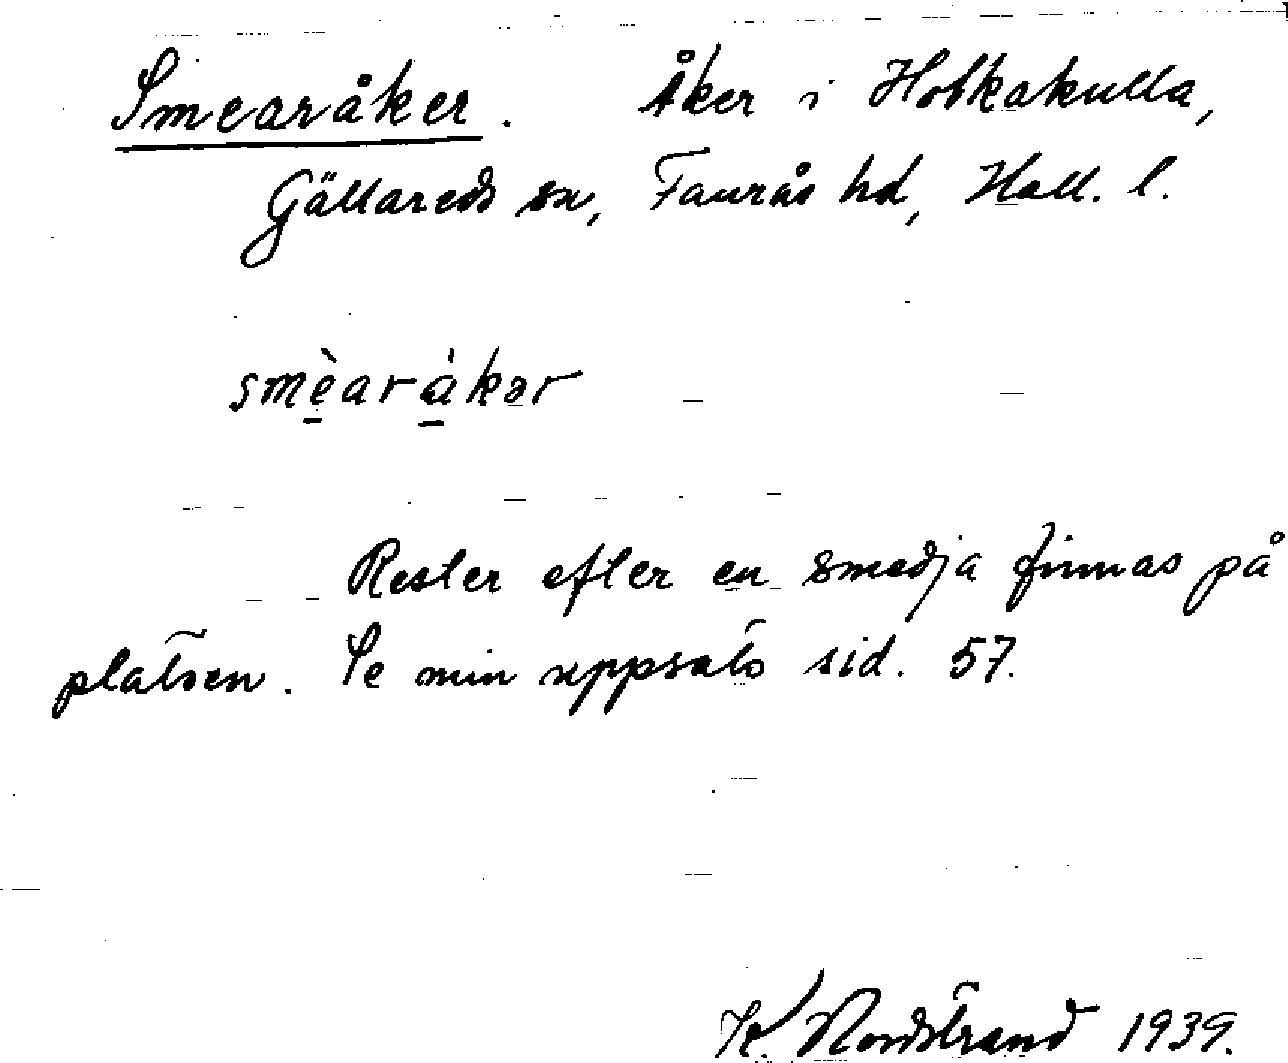 Smearåker. Åker i Hobkakulla,
Gällareds sn, Faurås hd, Hall. l.
smèaràkər
Rester efter en smedja finnas på
platsen. Se min uppsats sid. 57.
K. Nordstrand 1939.